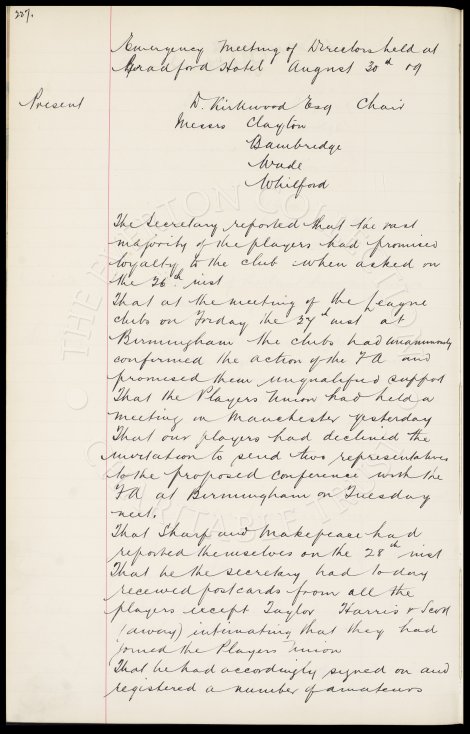 227.
Emergency Meeting of Directors held at
Bradford Hotel August 30th 09
Present D. Kirkwood Esq Chair
Messrs Clayton
Bainbridge
Wade
Whitford
The Secretary reported that the vast
majority of the players had promised
loyalty to the club when asked on
the 26th inst
That at the meeting of the League
clubs on Friday the 27th inst at
Birmingham the clubs had unanimously
confirmed the action of the FA and
promised them unqualified support
That the Players Union had held a
meeting in Manchester yesterday
That our players had declined the
invitation to send two representatives
to the proposed conference with the
FA at Birmingham on Tuesday
next.
That Sharp and Makepeace had
reported themselves on the 28th inst
That he the Secretary had to day
received postcards from all the
players except Taylor Harris & Scott
(away) intimating that they had
joined the Players Union
That he had accordingly signed on and
registered a number of amateurs
THE EVERTON COLLECTION
CHARITABLE TRUST